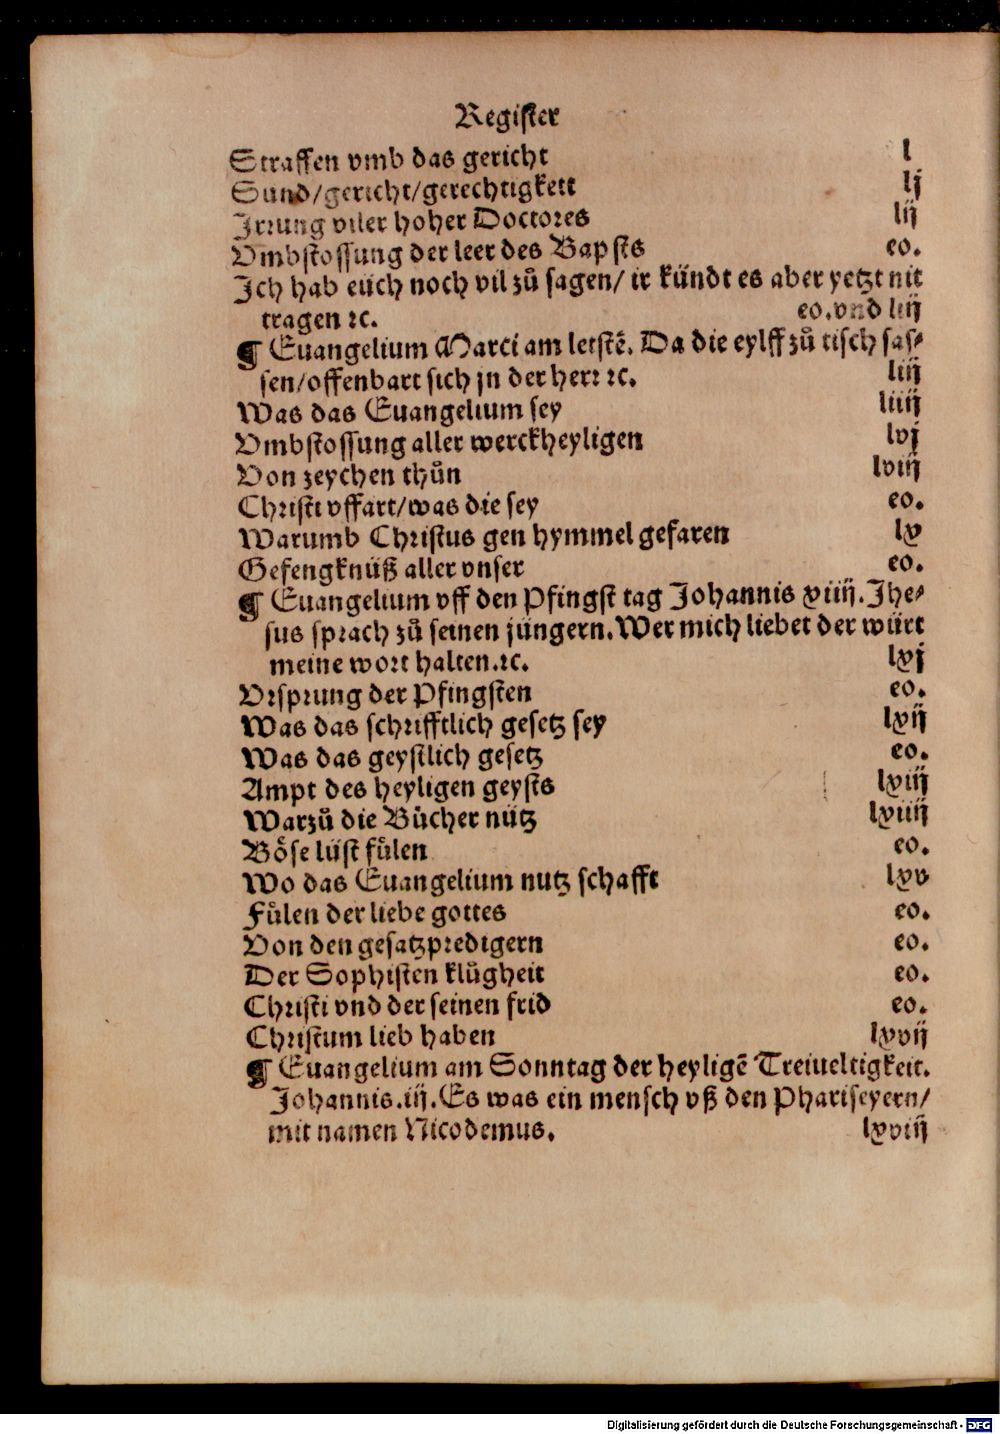 Register
Straffen vmb das gericht l
Sund/gericht/gerechtigkett lj
Jrrung viler hoher Doctores lij
Vmbstossung der leer des Bapsts eo.
Jch hab eüch noch vil zů sagen/ ir kündt es aber yetzt nit
tragen ꝛc. eo.vnd liij
¶ Euangelium Marci am letstē. Da die eylff zů tisch sas⸗
sen/offenbart sich jn der herr ꝛc. liij
Was das Euangelium sey liiij
Vmbstossung aller werckheyligen lvj
Von zeychen thůn lviij
Christi vffart/was die sey eo.
Warumb Christus gen hymmel gefaren lx
Gefengknüß aller vnser eo.
¶ Euangelium vff den Pfingst tag Johannis xiiij. Jhe⸗
sus sprach zů seinen jüngern. Wer mich liebet der würt
meine wort halten.ꝛc. lxj
Vrsprung der Pfingsten eo.
Was das schrifftlich gesetz sey lxij
Was das geystlich gesetz eo.
Ampt des heyligen geysts lxiij
Warzů die Bücher nütz lxiiij
Böse lüst fůlen eo.
Wo das Euangelium nutz schafft lxv
Fůlen der liebe gottes eo.
Von den gesatzpredigern eo.
Der Sophisten klůgheit eo.
Christi vnd der seinen frid eo.
Christum lieb haben lxvij
¶ Euangelium am Sonntag der heyligē Treiueltigkeit.
Johannis.iij. Es was ein mensch vß den Phariseyern/
mit namen Nicodemus. lxviij
Digitalisierung gefördert durch die Deutsche Forschungsgemeinschaft - DFG